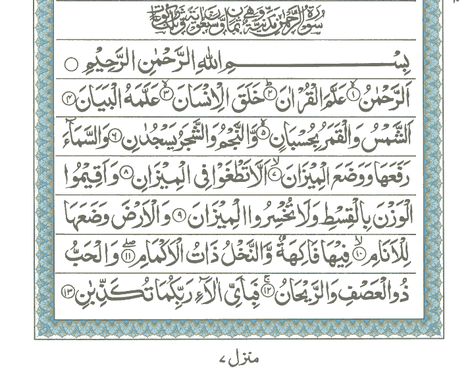 سورة الرحمن مدنية وهي ثمان وسبعون اية وثلث ركوعات
بِسْمِ اللهِ الرَّحْمٰنِ الرَّحِيْمِ ○
اَلرَّحْمٰنُ ۝١ عَلَّمَ الْقُرْاٰنَ ۝٢ خَلَقَ الْاِنْسَانَ ۝٣ عَلَّمَهُ الْبَيَانَ ۝٤
اَلشَّمْسُ وَالْقَمَرُ بِحُسْبَانٍ ۝٥ وَّالنَّجْمُ وَالشَّجَرُ يَسْجُدٰنِ ۝٦ وَالسَّمَآءَ
رَفَعَهَا وَوَضَعَ الْمِيْزَانَ ۝٧ اَلَّا تَطْغَوْا فِى الْمِيْزَانِ ۝٨ وَاَقِيْمُوا
الْوَزْنَ بِالْقِسْطِ وَلَا تُخْسِرُوا الْمِيْزَانَ ۝٩ وَالْاَرْضَ وَضَعَهَا
لِلْاَنَامِ ۝١٠ فِيْهَا فَاكِهَةٌ وَّالنَّخْلُ ذَاتُ الْاَكْمَامِ ۝١١ وَالْحَبُّ
ذُو الْعَصْفِ وَالرَّيْحَانُ ۝١٢ فَبِاَىِّ اٰلَآءِ رَبِّكُمَا تُكَذِّبٰنِ ۝١٣
منزل ٧